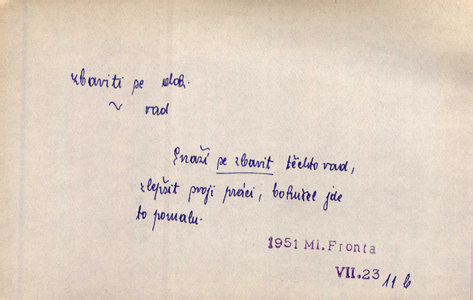 zbaviti se dok.
~ vad
Snaží se zbavit těchto vad,
zlepšit svoji práci, bohužel jde
to pomalu.
1951 Ml. Fronta
VII. 23 11 b